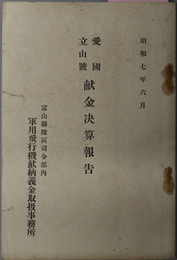 昭和七年六月
愛國
立山號
献金決算報告
富山聯隊區司令部内
軍用飛行機献納義金取扱事務所